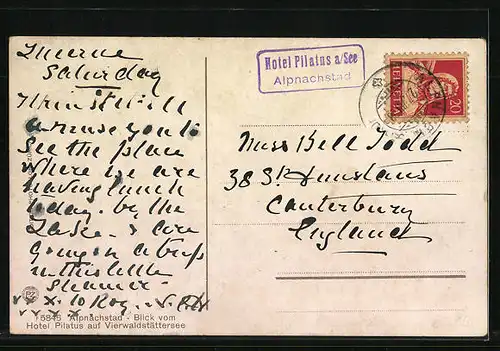 Lucerne
Saturday
I thinkt will
amuse you to
see the place
where we are
having lunch
today. by the
Lake & are
going on a trip
in this little
Steamer
x x x. to Rog.
x x x x.
15845 Alpnachstad - Blick vom
Hotel Pilatus auf Vierwaldstättersee
Hotel Pilatus a/See
Alpnachstad
HELVETIA
20
Miss Bell Todd
38 St. Dunstans
Canterbury
England